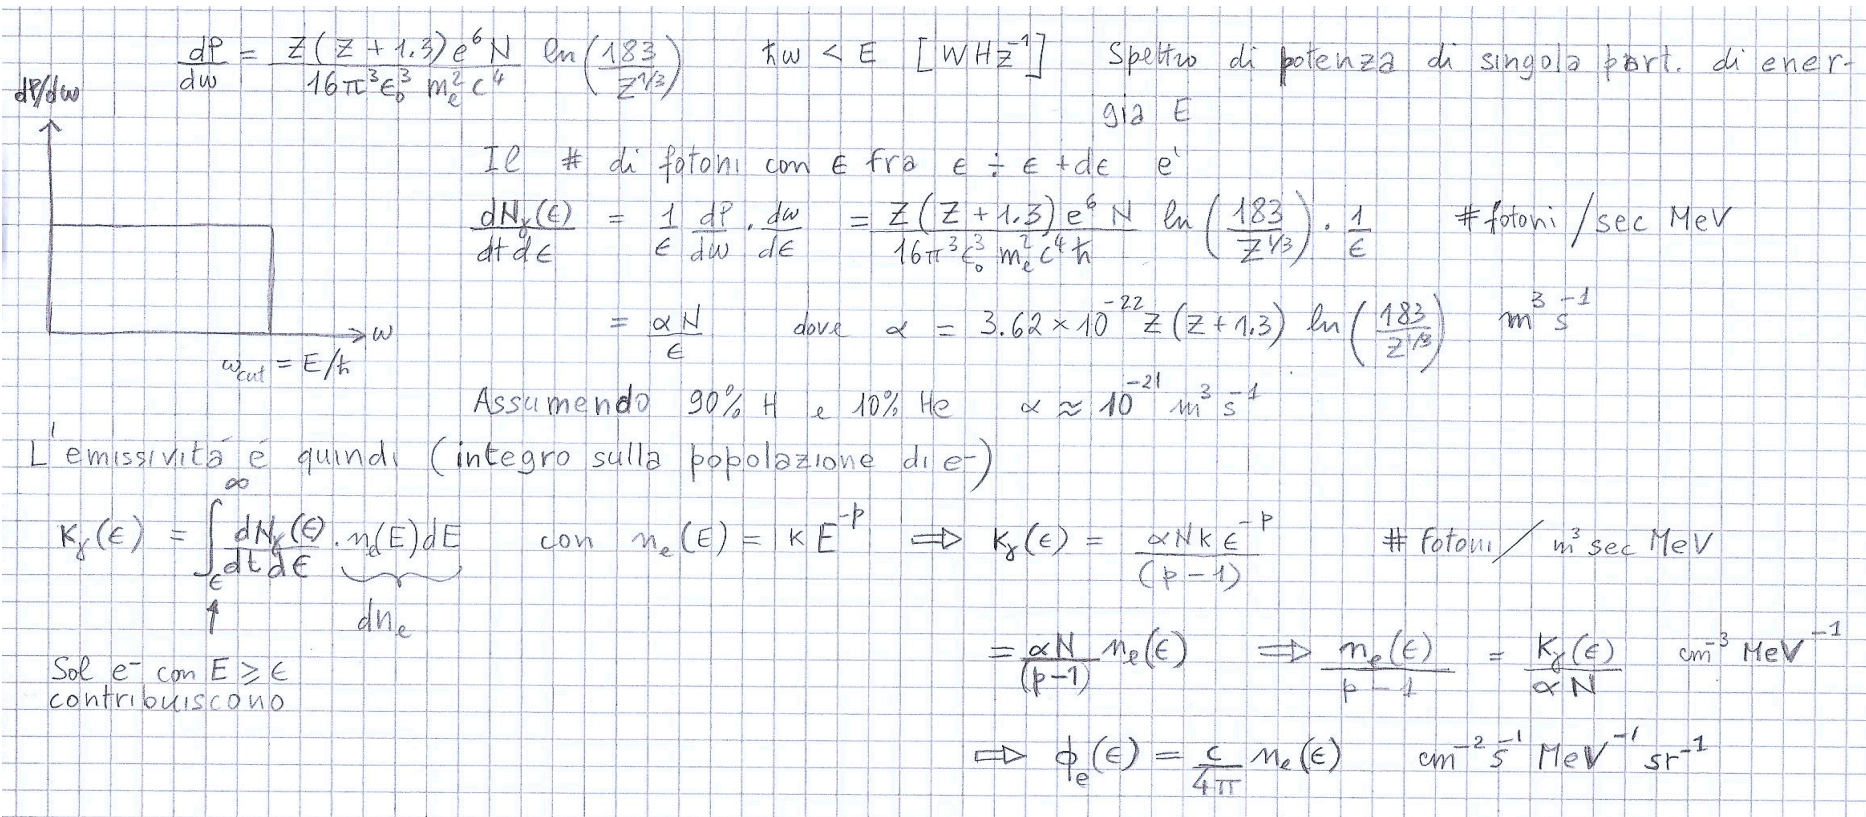 dP/dω = Z(Z+1.3)e⁶N / 16π³ε₀³ mₑ²c⁴ ln(183/Z^{1/3}) ħω < E [W Hz⁻¹] Spettro di potenza di singola part. di ener-
gia E
dP/dω
Il # di fotoni con ϵ fra ϵ ÷ ϵ + dϵ e'
dNγ(ϵ)/dtdϵ = 1/ϵ dP/dω · dω/dϵ = Z(Z+1.3)e⁶N / 16π³ε₀³ mₑ²c⁴ħ ln(183/Z^{1/3}) · 1/ϵ # fotoni/sec MeV
= αN/ϵ dove α = 3.62 × 10⁻²² Z(Z+1.3) ln(183/Z^{1/3}) m³ s⁻¹
ω
ω_cut = E/ħ
Assumendo 90% H e 10% He α ≈ 10⁻²¹ m³ s⁻¹
L'emissivitá é quindi (integro sulla popolazione di e-)
Kγ(ϵ) = ∫_ϵ^∞ dNγ(ϵ)/dtdϵ · nₑ(E)dE con nₑ(E) = kE^{-p} ⇒ Kγ(ϵ) = αNkϵ^{-p}/(p-1) # fotoni/m³ sec MeV
dnₑ
Sol e⁻ con E ⩾ ϵ
contribuiscono
= αN/(p-1) nₑ(ϵ) ⇒ nₑ(ϵ)/p-1 = Kγ(ϵ)/αN cm⁻³ MeV⁻¹
⇒ ϕₑ(ϵ) = c/4π nₑ(ϵ) cm⁻² s⁻¹ MeV⁻¹ sr⁻¹